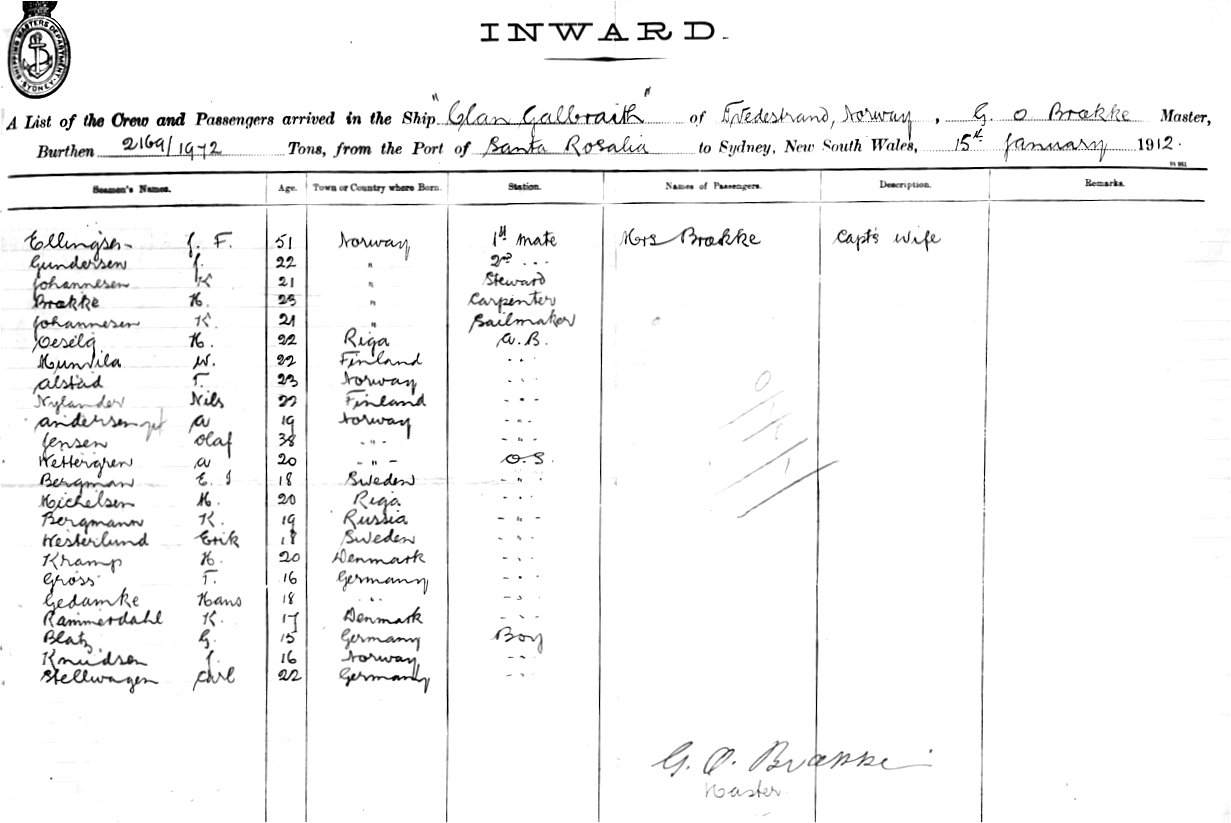 SHIPPING MASTERS DEPARTMENT SYDNEY
INWARD.
A List of the Crew and Passengers arrived in the Ship "Clan Galbraith" of Tvedestrand, Norway, G. O Brække Master,
Burthen 2169/1972 Tons, from the Port of Santa Rosalia to Sydney, New South Wales, 15th January 1912.
Seamen's Names. Age. Town or Country where Born. Station. Names of Passengers. Description. Remarks.
Ellingsen J. F. 51 Norway 1st mate Mrs Brække Capt's wife
Gundersen J. 22 " 2nd ...
Johannesen K 21 " Steward
Brække H. 25 " Carpenter
Johannesen K. 21 " Sailmaker
Oeselg H. 22 Riga A.B.
Hunvila W. 22 Finland - " -
Alstad T. 23 Norway - " -
Nylander Nils 22 Finland - " -
Andersen A 19 Norway - " -
Jensen Olaf 38 - " - - " -
Wettergren A 20 - " - O.S.
Bergman E. J 18 Sweden - " -
Michelsen H. 20 Riga - " -
Bergmann K. 19 Russia - " -
Westerlund Erik 18 Sweden - " -
Kramp H. 20 Denmark - " -
Gross T. 16 Germany - " -
Gedamke Hans 18 - " - - " -
Rammerdahl K. 17 Denmark - " -
Blatz G. 15 Germany Boy
Knudsen J. 16 Norway - " -
Stellwagen Carl 22 Germany - " -
G. O. Brække
Master